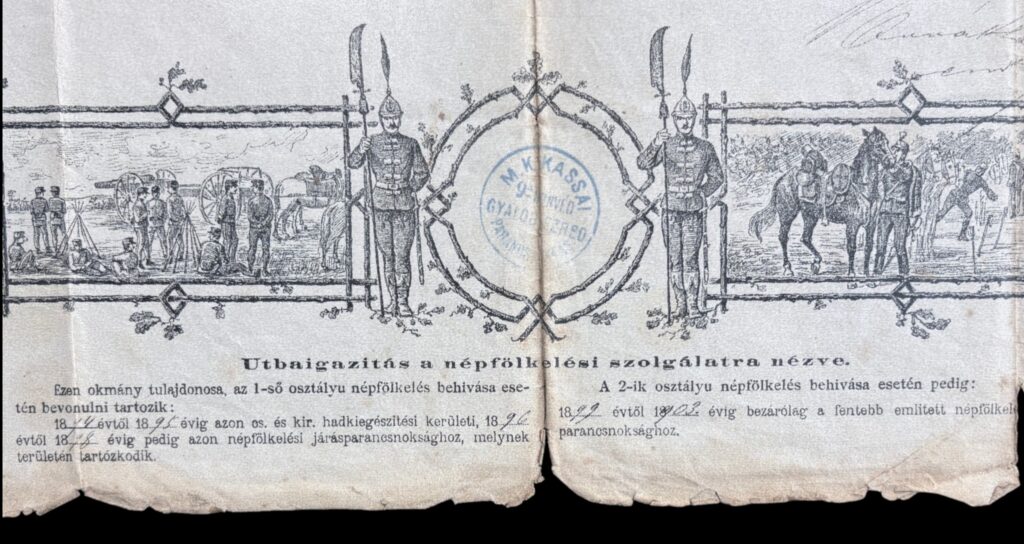 M. K. KASSAI
9-
GYALOGEZRED
Utbaigazitás a népfölkelési szolgálatra nézve.
Ezen okmány tulajdonosa, az 1-ső osztályu népfölkelés behivása ese-
tén bevonulni tartozik:
évtől 1895 évig azon cs. és kir. hadkiegészitési kerületi, 1896
évtől évig pedig azon népfölkelési járásparancsnoksághoz, melynek
területén tartózkodik.
A 2-ik osztályu népfölkelés behivása esetén pedig:
1899 évtől 1903. évig bezárólag a fentebb emlitett népfölkel
parancsnoksághoz.